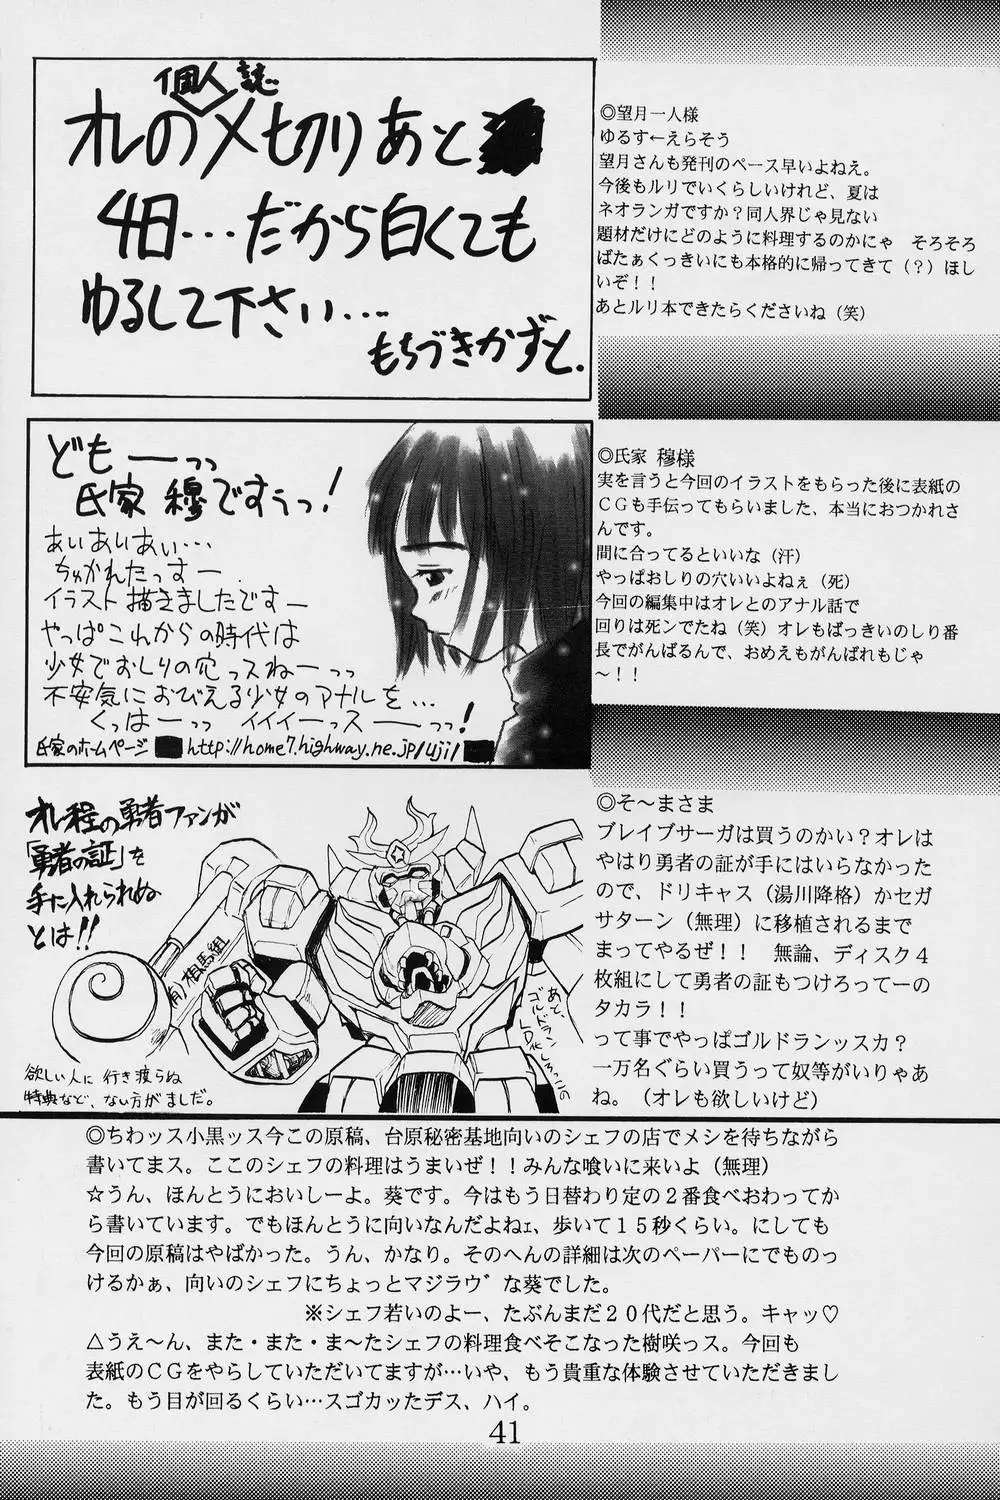 個人誌…
オレの〆切りあと
4日…だから白くても
ゆるして下さい…
もちづきかずと.
◎望月一人様
ゆるす←えらそう
望月さんも発刊のペース早いよねえ。
今後もルリでいくらしいけれど、夏は
ネオランガですか?同人界じゃ見ない
題材だけにどのように料理するのかにゃ　そろそろ
ばたぁくっきいにも本格的に帰ってきて（?）ほし
いぞ!!
あとルリ本できたらくださいね（笑）
どもーーっっ
氏家 穆ですぅっ!
あいあいあい…
ちゅかれたっすー
イラスト描きましたですー
◎氏家 穆様
実を言うと今回のイラストをもらった後に表紙の
ＣＧも手伝ってもらいました、本当におつかれさ
んです。
間に合ってるといいな（汗）
オレ程の勇者ファンが
「勇者の証」を
手に入れられぬ
とは!!
(有)相馬組
欲しい人に行き渡らぬ
特典など、ない方がましだ。
◎そ～まさま
ブレイブサーガは買うのかい?オレは
やはり勇者の証が手にはいらなかった
ので、ドリキャス（湯川降格）かセガ
サターン（無理）に移植されるまで
まってやるぜ!!　無論、ディスク４
枚組にして勇者の証もつけろってーの
タカラ!!
って事でやっぱゴルドランッスカ?
一万名ぐらい買うって奴等がいりゃあ
ね。（オレも欲しいけど）
◎ちわッス小黒ッス今この原稿、台原秘密基地向いのシェフの店でメシを待ちながら
書いてまス。ここのシェフの料理はうまいぜ!!みんな喰いに来いよ（無理）
☆うん、ほんとうにおいしーよ。葵です。今はもう日替わり定の２番食べおわってか
ら書いています。でもほんとうに向いなんだよねｪ、歩いて１５秒くらい。にしても
今回の原稿はやばかった。うん、かなり。そのへんの詳細は次のペーパーにでものっ
けるかぁ、向いのシェフにちょっとマジラヴ゛な葵でした。
※シェフ若いのよー、たぶんまだ２０代だと思う。キャッ♡
△うえ～ん、また・また・ま～たシェフの料理食べそこなった樹咲っス。今回も
表紙のＣＧをやらしていただいてますが…いや、もう貴重な体験させていただきまし
た。もう目が回るくらい…スゴカッたデス、ハイ。
41